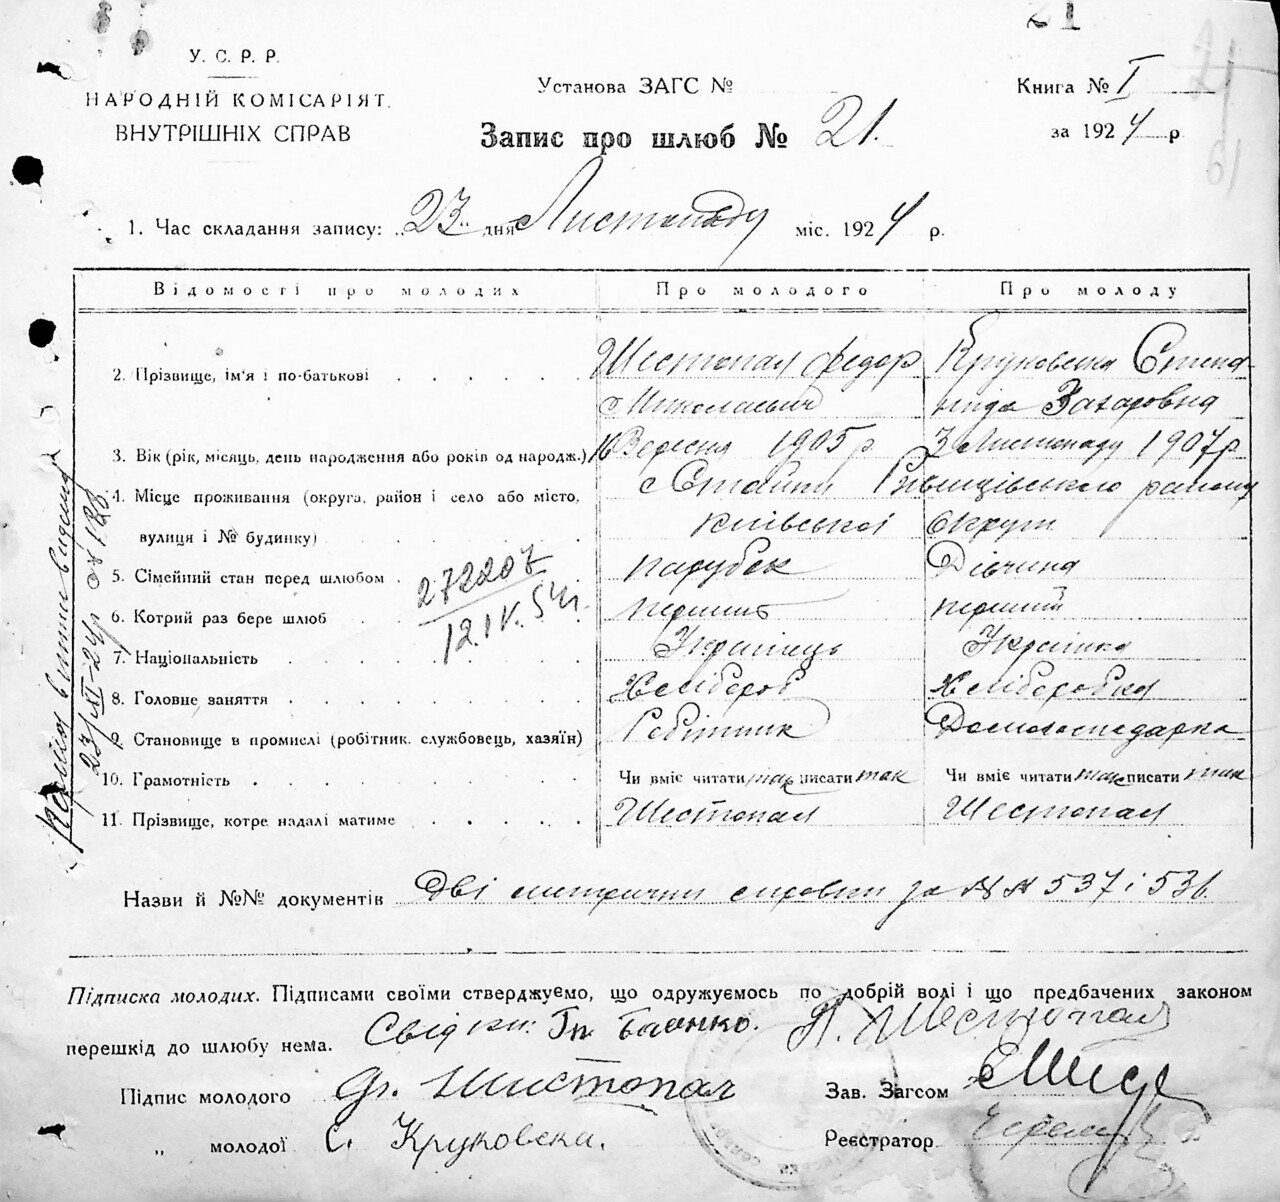 21
У. С. Р. Р.
НАРОДНІЙ КОМІСАРІЯТ
ВНУТРІШНІХ СПРАВ
Установа ЗАГС №
Книга № I
Запис про шлюб № 21.
за 1924 р.
1. Час складання запису: „23„ дня Листопаду міс. 1924 р.
Відомості про молодих Про молодого Про молоду
2. Прізвище, ім'я і по-батькові Шестопал Федор Круковска Степа-
Миколаевич нида Захаровна
3. Вік (рік, місяць, день народження або років од народж.) 16 Вересня 1905 р. 3 Листопаду 1907 р
4. Місце проживання (округа, район і село або місто, с Стайки Ржищівського району
вулиця і № будинку) Київської Округи
5. Сімейний стан перед шлюбом парубок Дівчина
6. Котрий раз бере шлюб перший перший
7. Національність Українець Українка
8. Головне заняття Хлібороб Хліборобка
9. Становище в промислі (робітник. службовець, хазяїн) Робітник Домогосподарка
10. Грамотність Чи вміє читати так писати так Чи вміє читати так писати так
11. Прізвище, котре надалі матиме Шестопал Шестопал
272207
12.IV.54г.
Копия выписи видана
23/XII-24р за № 128
Назви й №№ документів Дві метричні справки за №№ 537 і 536.
Підписка молодих. Підписами своїми стверджуємо, що одружуємось по добрій волі і що предбачених законом
перешкід до шлюбу нема. Свідки: Гр. П. Шестопал
Підпис молодого Ф. Шистопал Зав. Загсом
„ молодої С. Круковска. Реєстратор